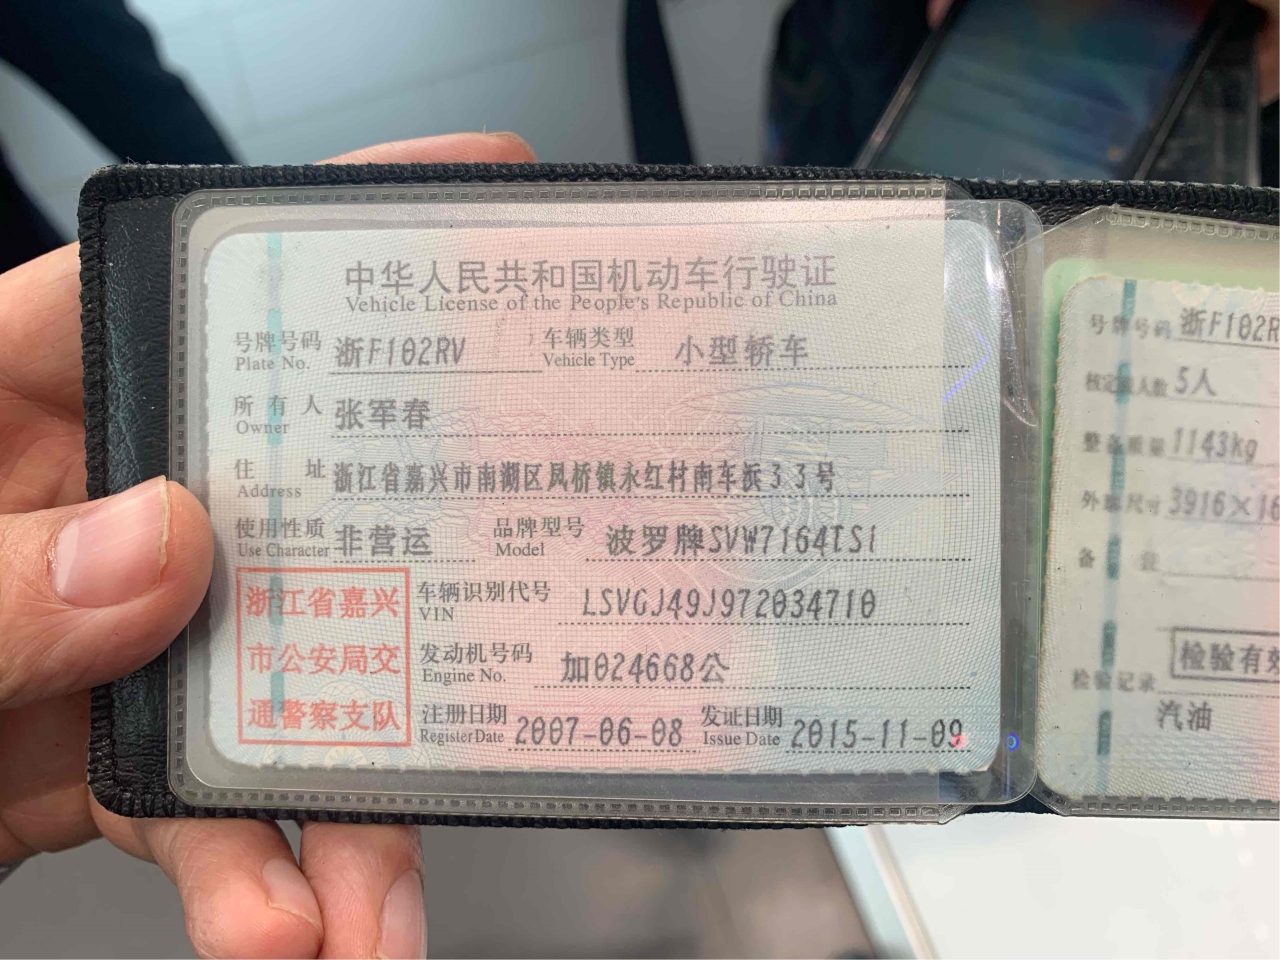 中华人民共和国机动车行驶证
Vehicle License of the People's Republic of China
号牌号码 浙F102RV 车辆类型 小型轿车
Plate No. Vehicle Type
所有人 张军春
Owner
住址 浙江省嘉兴市南湖区凤桥镇永红村南车浜33号
Address
使用性质 非营运 品牌型号 波罗牌SVW7164ISi
Use Character Model
浙江省嘉兴
市公安局交
通警察支队
车辆识别代号 LSVGJ49J972034710
VIN
发动机号码 加024668公
Engine No.
注册日期 2007-06-08 发证日期 2015-11-09
Register Date Issue Date
号牌号码 浙F102R
核定载人数 5人
整备质量 1143kg
外廓尺寸 3916×16
备注
检验有效
检验记录
汽油